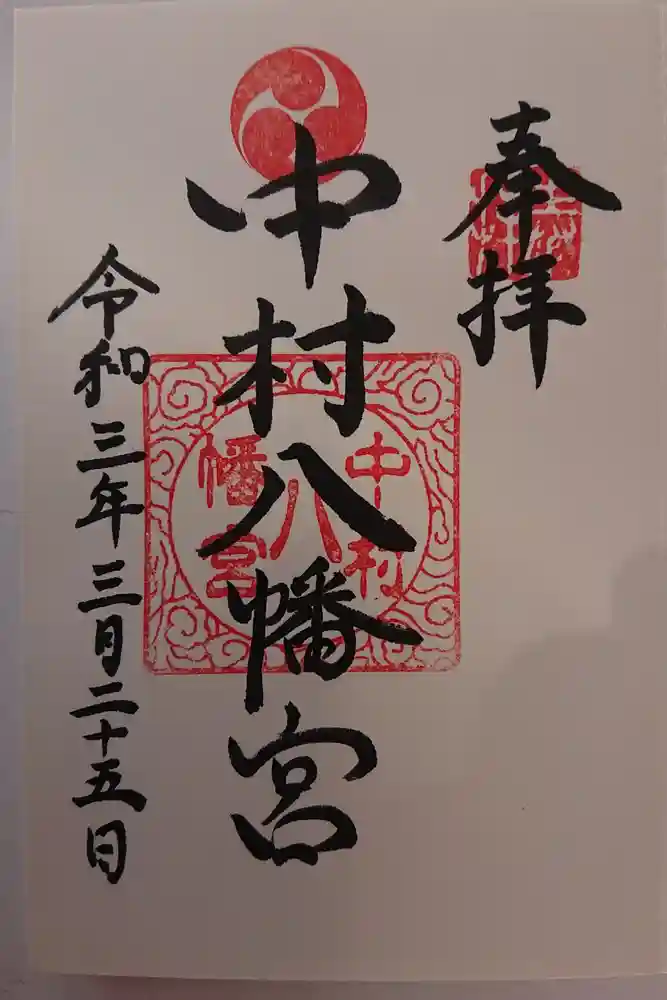 奉拝
中村八幡宮
中村
八
幡宮
令和三年三月二十五日